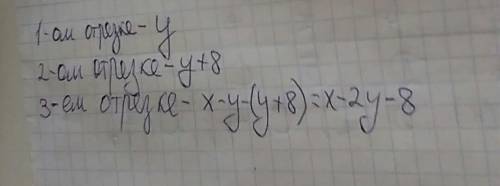 1-ом отрезке - y
2-ом отрезке - y+8
3-ем отрезке - x-y-(y+8)=x-2y-8